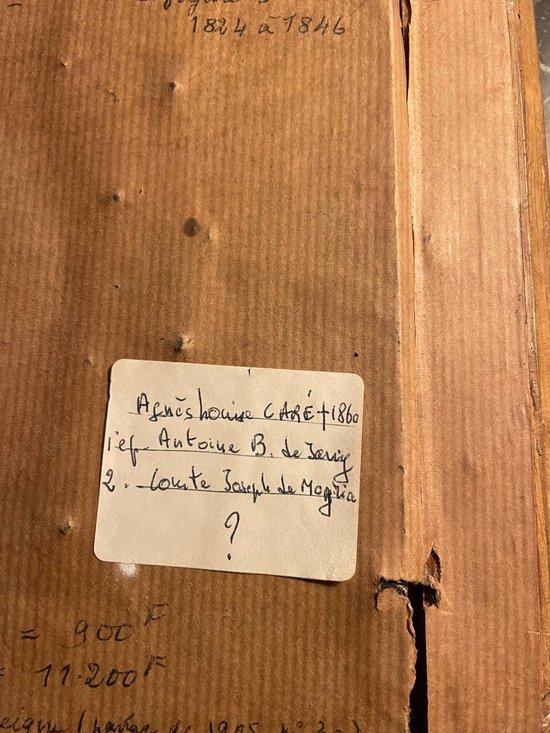 1824 à 1846
Agnès Louise CARÉ † 1860
1° ep. Antoine B. de
2. Comte Joseph de Moglia
?
= 900F
= 11.200F
de 1905 n°